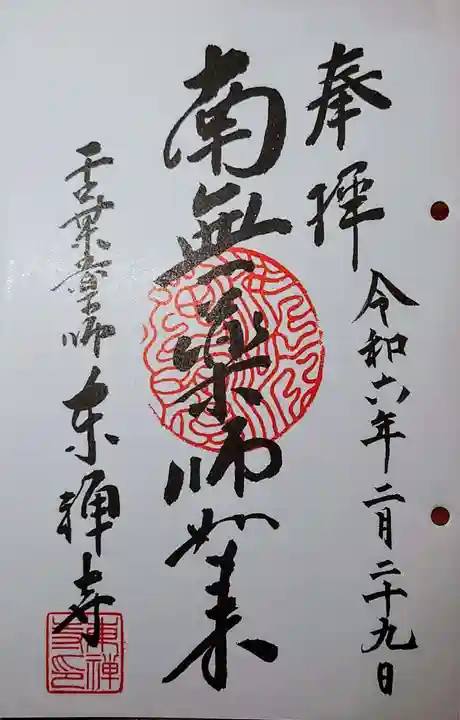 奉拝
令和六年二月二十九日
南無薬師如来
薬師
東禅寺